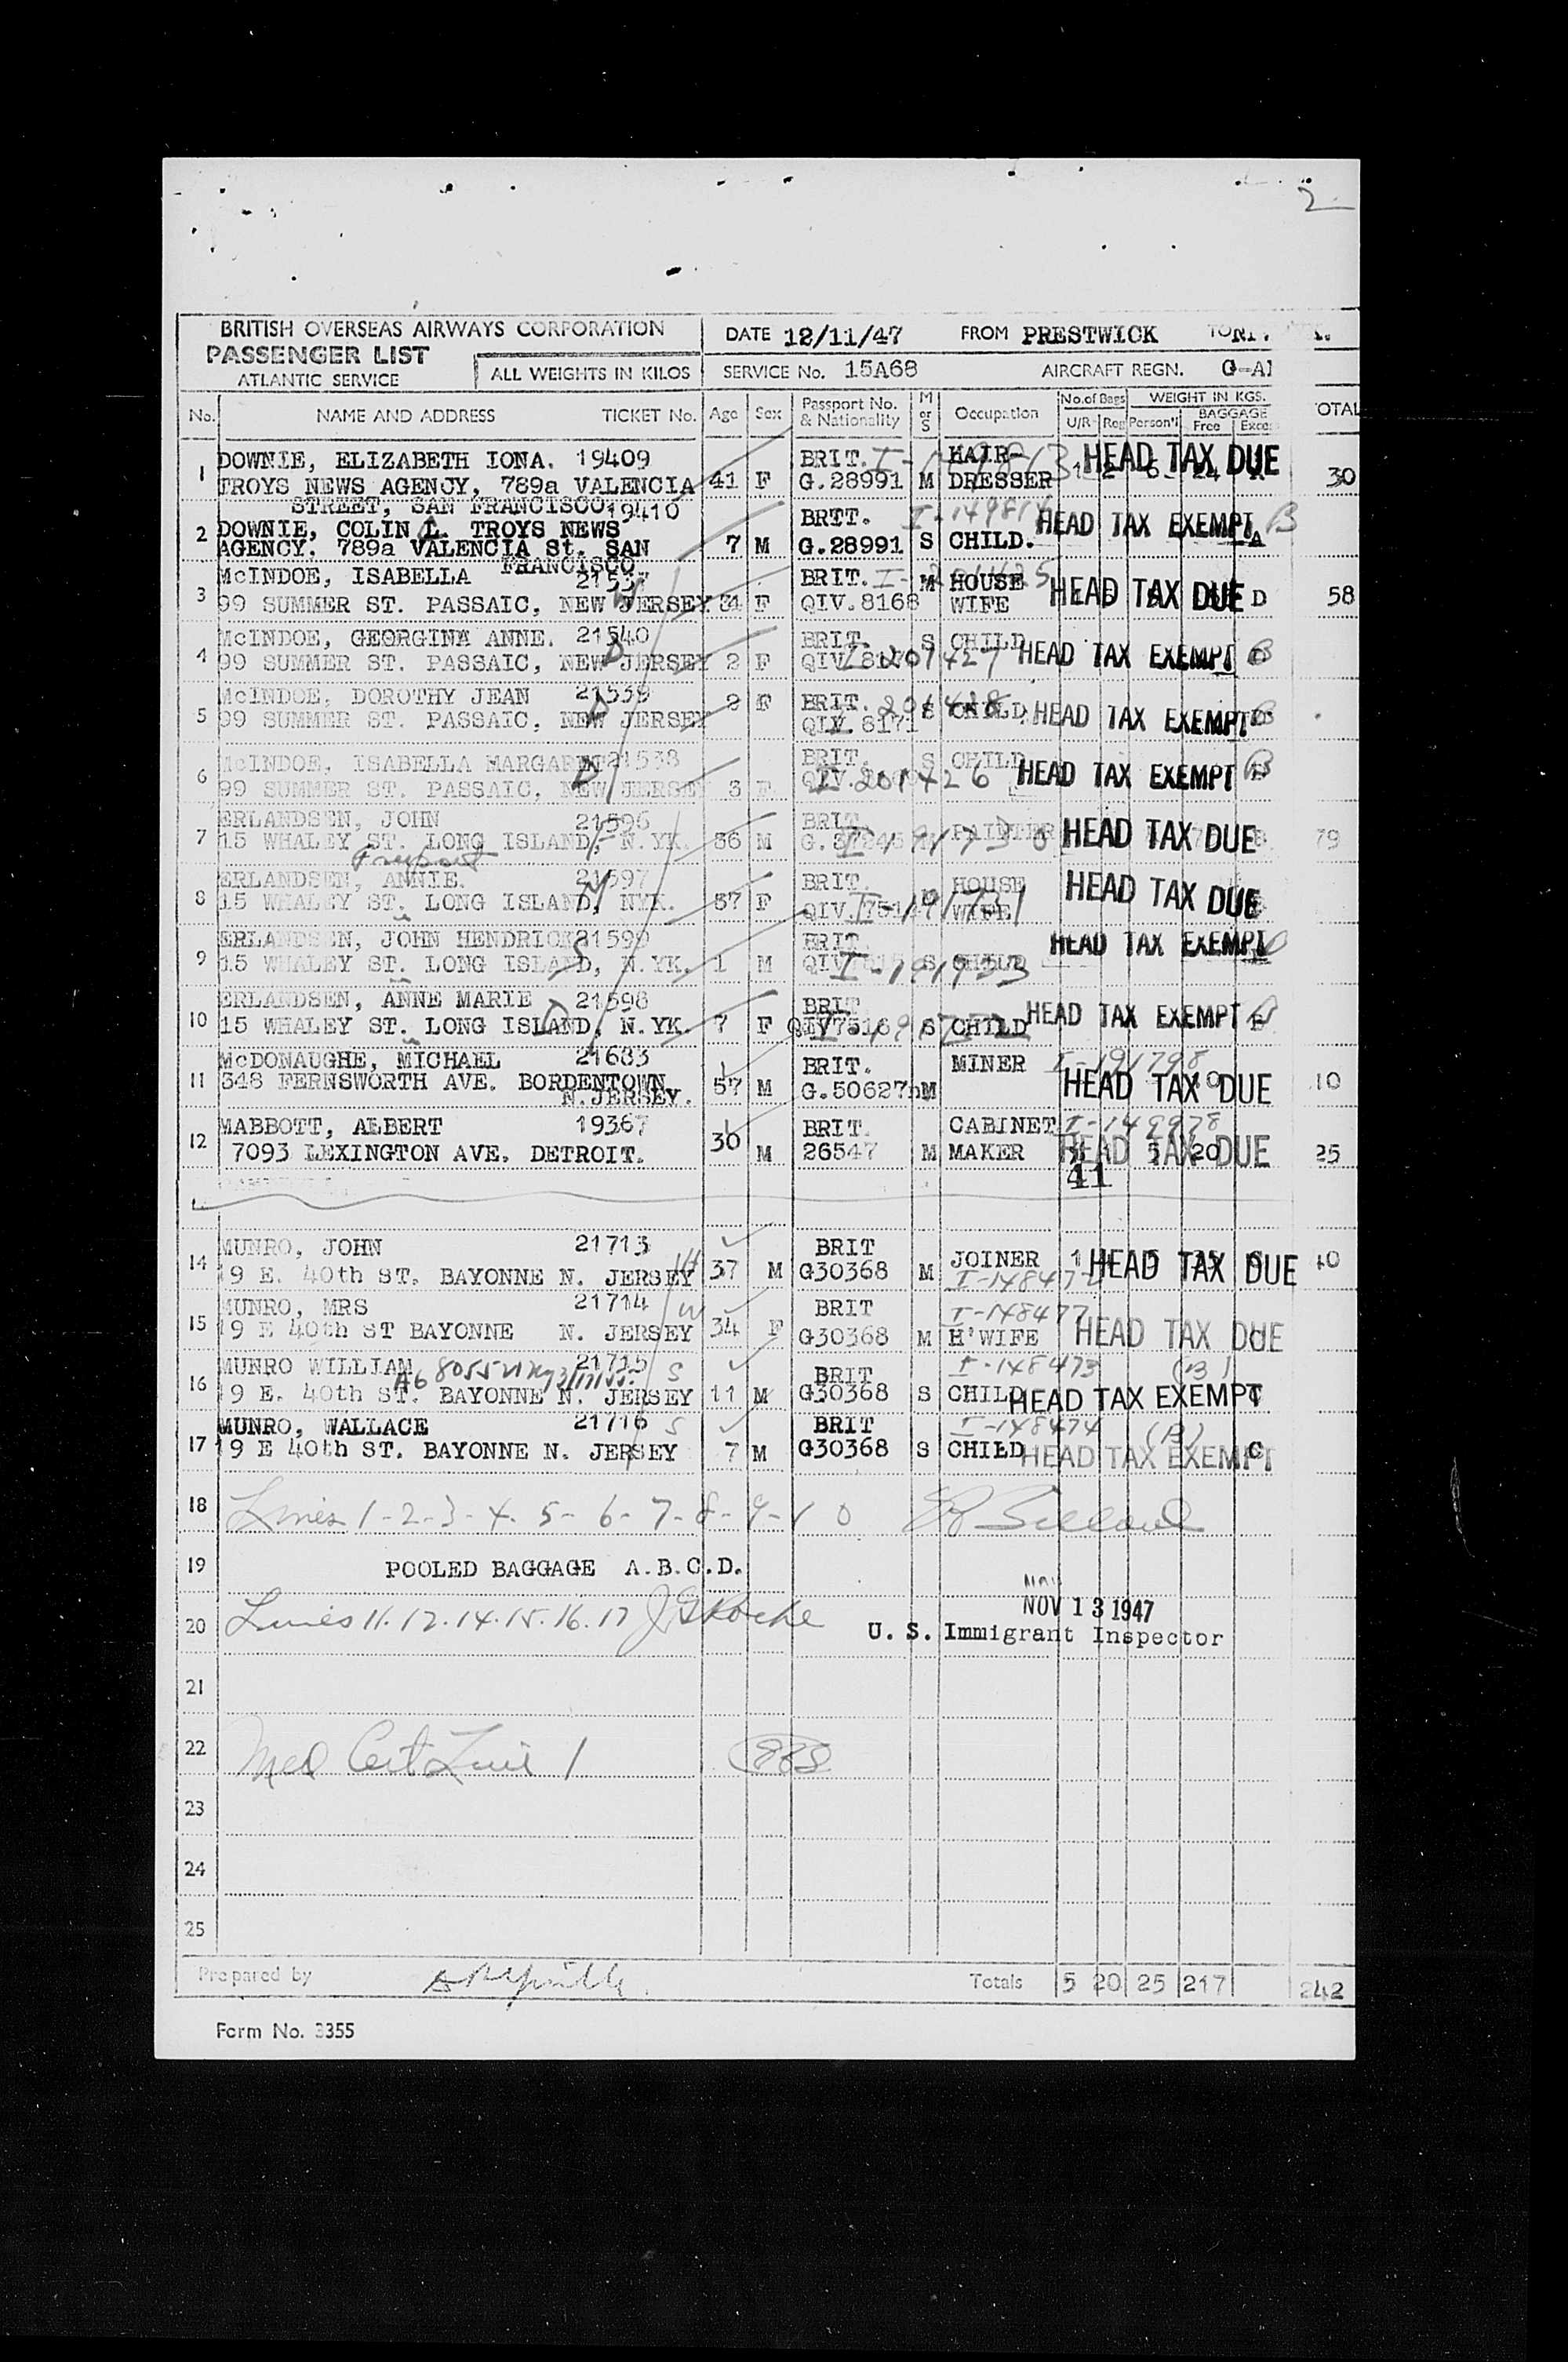 2
BRITISH OVERSEAS AIRWAYS CORPORATION
PASSENGER LIST
ATLANTIC SERVICE
ALL WEIGHTS IN KILOS
DATE 12/11/47 FROM PRESTWICK TO
SERVICE No. 15A68 AIRCRAFT REGN. G-A
No. NAME AND ADDRESS TICKET No. Age Sex Passport No. & Nationality M or S Occupation No. of Bags U/R Reg WEIGHT IN KGS. Person'l BAGGAGE Free Exce TOTAL
1 DOWNIE, ELIZABETH IONA. 19409 41 F BRIT. HAIR- HEAD TAX DUE 30
TROYS NEWS AGENCY, 789a VALENCIA G.28991 M DRESSER
STREET, SAN FRANCISCO 19410
2 DOWNIE, COLIN L. TROYS NEWS 7 M BRIT. I-149814 HEAD TAX EXEMPT B
AGENCY. 789a VALENCIA St. SAN G.28991 S CHILD. A
FRANCISCO
3 McINDOE, ISABELLA 21537 F BRIT. M HOUSE HEAD TAX DUE D 58
99 SUMMER ST. PASSAIC, NEW JERSEY QIV.8168 WIFE
4 McINDOE, GEORGINA ANNE. 21540 2 F BRIT. S CHILD HEAD TAX EXEMPT B
99 SUMMER ST. PASSAIC, NEW JERSEY 201427
5 McINDOE, DOROTHY JEAN 21539 2 F BRIT. S CHILD HEAD TAX EXEMPT B
99 SUMMER ST. PASSAIC, NEW JERSEY QIV. 8171
6 McINDOE, ISABELLA MARGARET 21538 3 F BRIT. S CHILD HEAD TAX EXEMPT B
99 SUMMER ST. PASSAIC, NEW JERSEY I 201426
7 ERLANDSEN, JOHN 21596 36 M BRIT. PAINTER HEAD TAX DUE 79
15 WHALEY ST. LONG ISLAND, N.YK.
Freeport
8 ERLANDSEN, ANNIE. 21597 37 F BRIT. HOUSE HEAD TAX DUE
15 WHALEY ST. LONG ISLAND, NYK. I-191731 WIFE
9 ERLANDSEN, JOHN HENDRICK 21599 1 M BRIT. S CHILD HEAD TAX EXEMPT
15 WHALEY ST. LONG ISLAND, N.YK. I-191733
10 ERLANDSEN, ANNE MARIE 21598 7 F BRIT S CHILD HEAD TAX EXEMPT B
15 WHALEY ST. LONG ISLAND, N.YK.
11 McDONAUGHE, MICHAEL 21683 57 M BRIT. M MINER I-191798 HEAD TAX DUE 10
348 FERNSWORTH AVE. BORDENTOWN G.50627
N.JERSEY.
12 MABBOTT, ALBERT 19367 30 M BRIT. M CABINET I-149978
7093 LEXINGTON AVE. DETROIT. 26547 MAKER HEAD TAX DUE 5 20 25
41
14 MUNRO, JOHN 21713 37 M BRIT M JOINER 1 HEAD TAX DUE 40
19 E. 40th ST. BAYONNE N. JERSEY G30368 I-148472
15 MUNRO, MRS 21714 W 34 F BRIT I-148477
19 E 40th ST BAYONNE N. JERSEY G30368 M H'WIFE HEAD TAX DUE C
16 MUNRO WILLIAM 21715 S 11 M BRIT I-148473 (B)
19 E. 40th ST. BAYONNE N. JERSEY G30368 S CHILD HEAD TAX EXEMPT C
17 MUNRO, WALLACE 21716 S 7 M BRIT I-148474 (B)
19 E 40th ST. BAYONNE N. JERSEY G30368 S CHILD HEAD TAX EXEMPT C
18 Lines 1-2-3-4-5-6-7-8-9-10
19 POOLED BAGGAGE A.B.C.D.
NOV 13 1947
20 Lines 11.12.14.15.16.17 J G Roche
U. S. Immigrant Inspector
21
22 Med Cert Line 1
23
24
25
Prepared by Totals 5 20 25 217 242
Form No. 3355